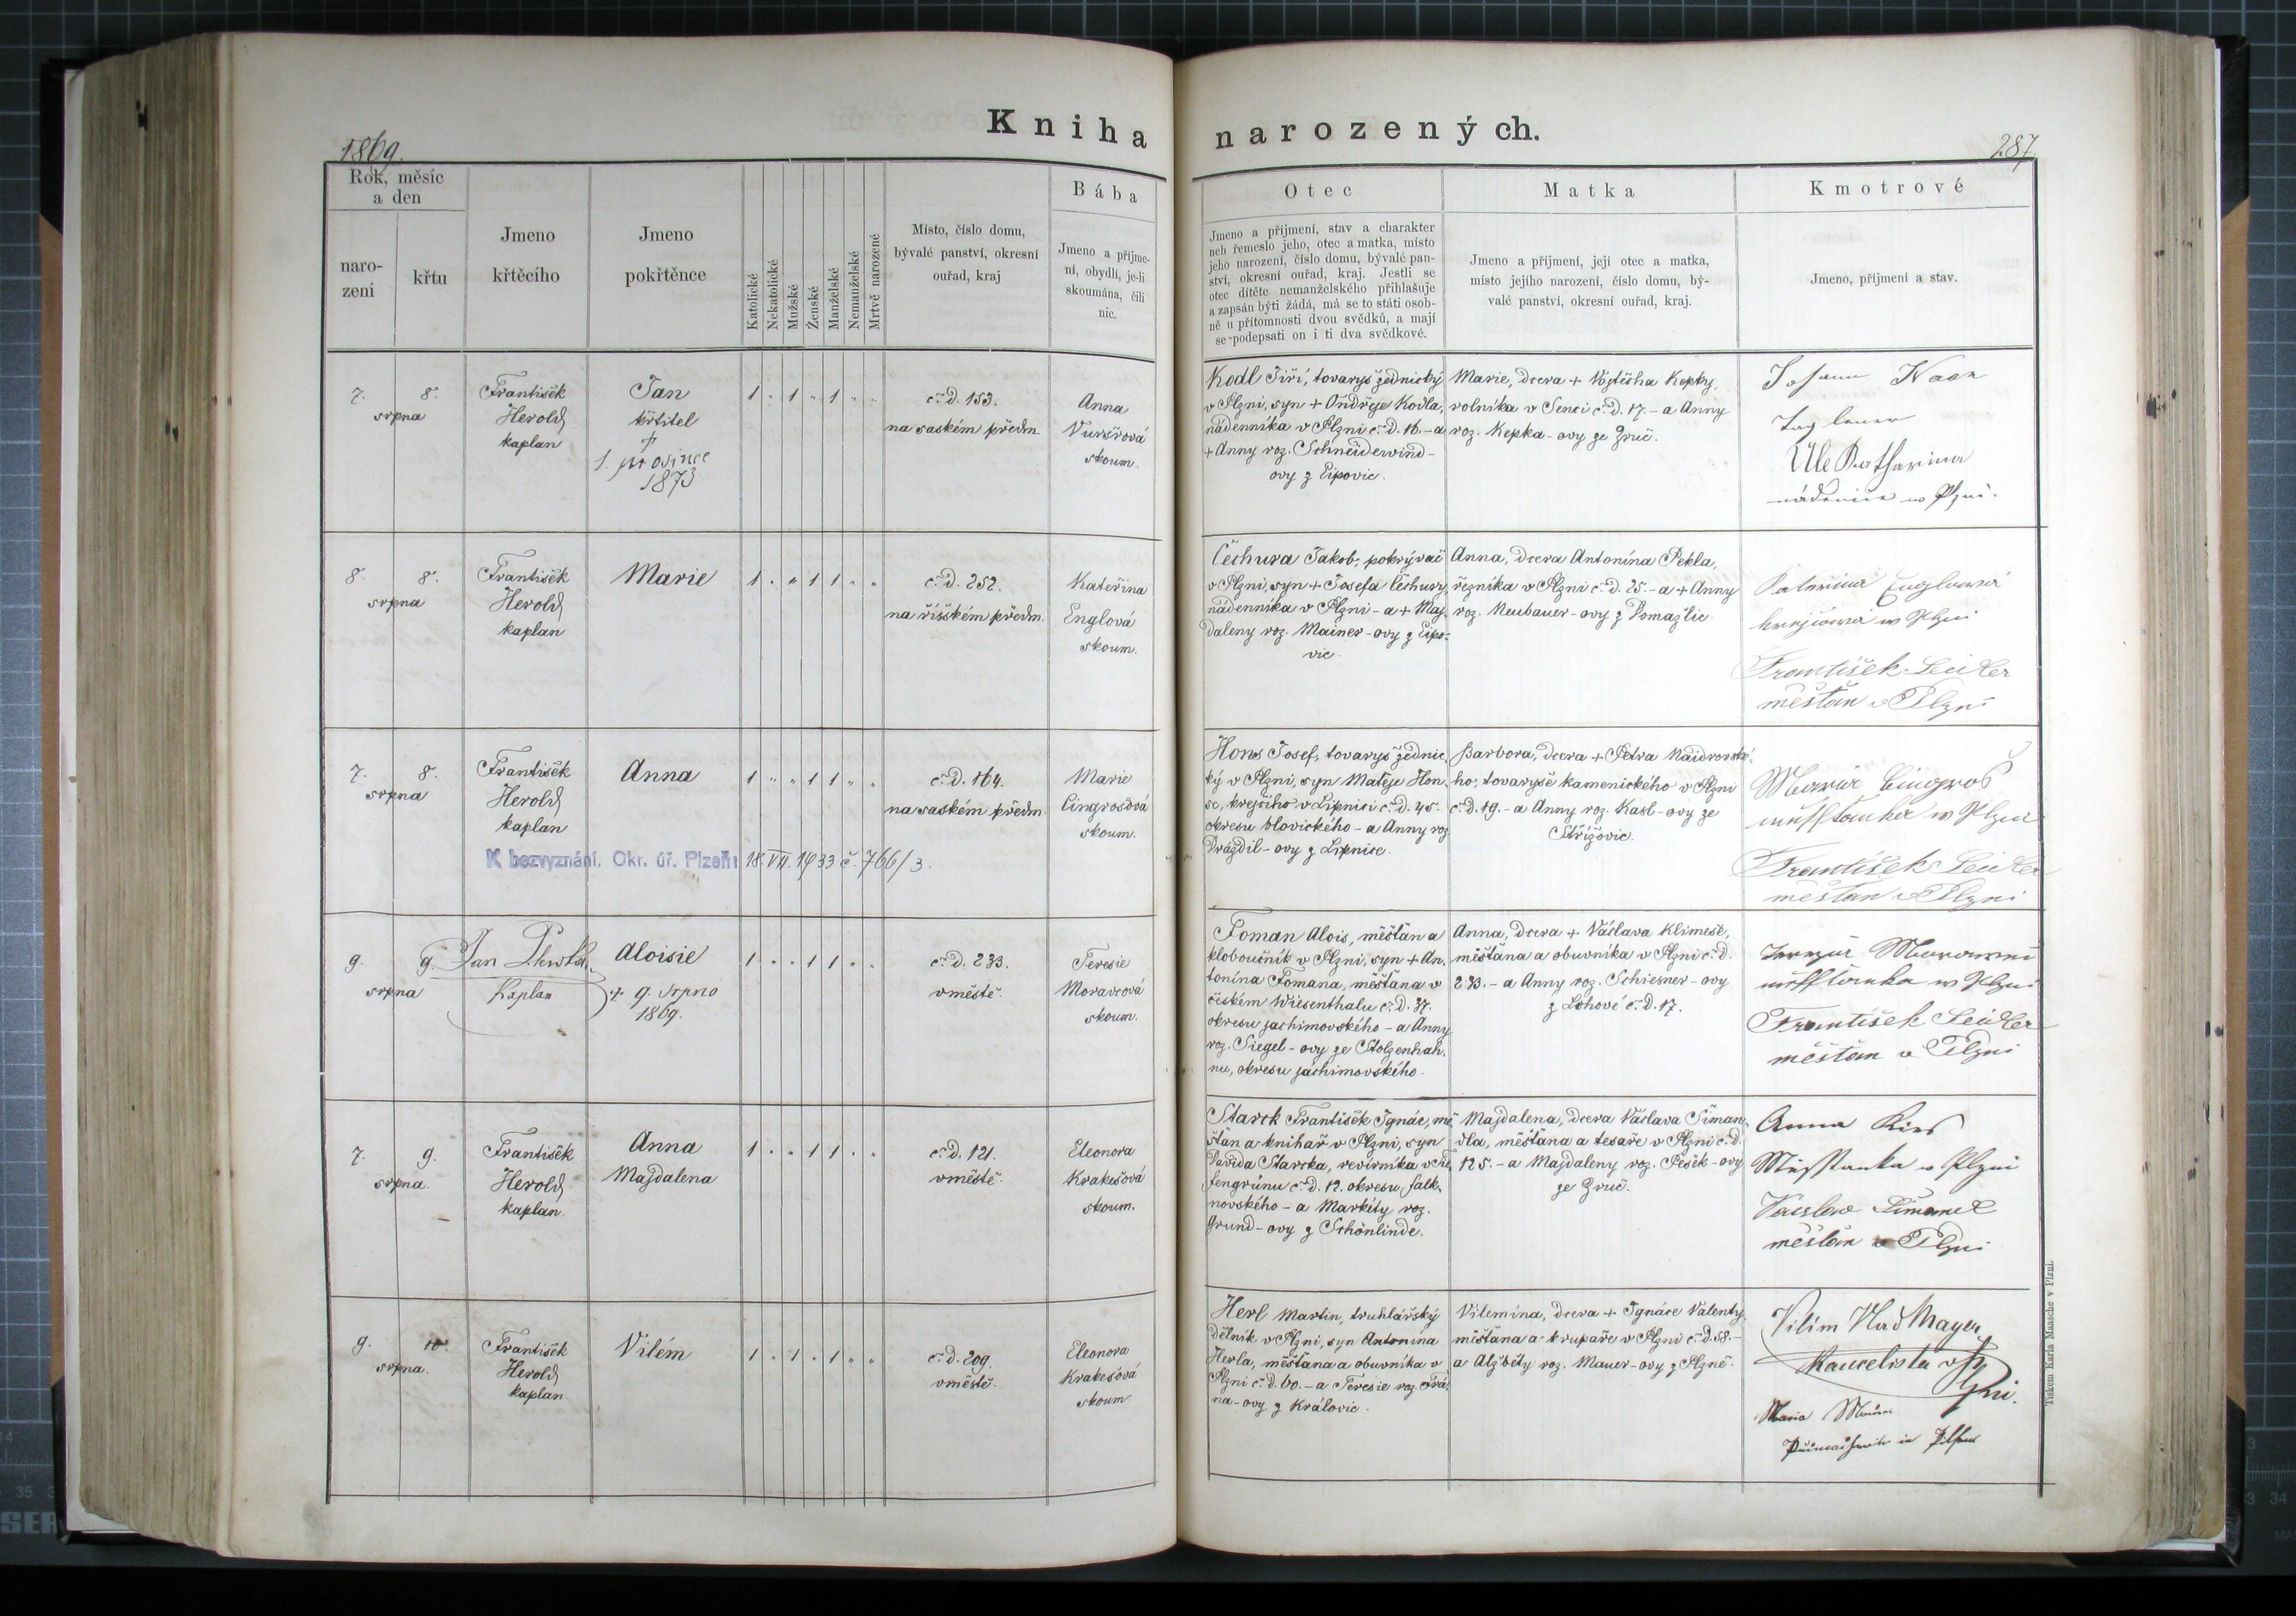 1869.
Kniha narozených.
287
Rok, měsíc
a den
naro-
zení
křtu
Jmeno
křtěcího
Jmeno
pokřtěnce
Katolické
Nekatolické
Mužské
Ženské
Manželské
Nemanželské
Mrtvě narozené
Místo, číslo domu,
bývalé panství, okresní
ouřad, kraj
Bába
Jmeno a příjme-
ní, obydlí, je-li
skoumána, čili
nic.
Otec
Jmeno a příjmení, stav a charakter
neb řemeslo jeho, otec a matka, místo
jeho narození, číslo domu, bývalé pan-
ství, okresní ouřad, kraj. Jestli se
otec dítěte nemanželského přihlašuje
a zapsán býti žádá, má se to státi osob-
ně u přítomnosti dvou svědků, a mají
se podepsati on i ti dva svědkové.
Matka
Jmeno a příjmení, její otec a matka,
místo jejího narození, číslo domu, bý-
valé panství, okresní ouřad, kraj.
Kmotrové
Jmeno, příjmení a stav.
7. 8.
srpna
František
Herold
kaplan
Jan
křtitel
†
1. prosince
1873
1 " 1 " 1 " "
č. d. 153.
na saském předm.
Anna
skoum.
Kodl Jiří, tovaryš zednický
v Plzni, syn + Ondřeje Kodla,
nádenníka v Plzni č. d. 16. - a
+ Anny roz. Schneiderwind-
ovy z Lipovic.
Marie, dcera + Vojtěcha Kepky,
rolníka v Senci č. d. 17. - a Anny
roz. Kepka-ovy ze Zruč.
Johann
Katharina
8. 8.
srpna
František
Herold
kaplan
Marie
1 " " 1 1 " "
č. d. 252.
na říšském předm.
Kateřina
Englová
skoum.
Čechura Jakob, pokrývač
v Plzni, syn + Josefa Čechury,
nádenníka v Plzni - a + Maj-
daleny roz. Mainer-ovy z Lipo-
vic.
Anna, dcera Antonína Pekla,
řezníka v Plzni č. d. 25. - a + Anny
roz. Neubauer-ovy z Domažlic.
Kateřina Englowá
krejčowá w Plzni
František Seidler
měšťan v Plzni
7. 8.
srpna
František
Herold
kaplan
Anna
1 " " 1 1 " "
č. d. 164.
na saském předm.
Marie
Cingrošová
skoum.
K bezvyznání. Okr. úř. Plzeň 18. VII. 1933 č. 766/3.
Hons Josef, tovaryš zednic-
ký v Plzni, syn Matěje Hon-
se, krejčího v Lipnici č. d. 45.
okresu blovického - a Anny roz.
Drázdil-ovy z Lipnice.
Barbora, dcera + Petra Naidrovské-
ho, tovaryše kamenického v Plzni
č. d. 19. - a Anny roz. Kasl-ovy ze
Střížovic.
Marie Cingroš
w Plzni
František Seidler
měšťan v Plzni
9. 9.
srpna
Jan
Kaplan
Aloisie
+ 9. srpna
1869.
1 " " 1 1 " "
č. d. 233.
v městě.
Teresie
Moravcová
skoum.
Toman Alois, měšťan a
kloboučník v Plzni, syn + An-
tonína Tomana, měšťana v
českém Wiesenthalu č. d. 37.
okresu jachimovského - a Anny
roz. Siegel-ovy ze Stolzenhah-
nu, okresu jáchimovského.
Anna, dcera + Václava Klimeše,
měšťana a obuvníka v Plzni č. d.
233. - a Anny roz. Schiesner-ovy
z Lohové č. d. 17.
w Plzni
František Seidler
měšťan v Plzni
7. 9.
srpna.
František
Herold
kaplan.
Anna
Majdalena
1 " " 1 1 " "
č. d. 121.
v městě.
Eleonora
Krakešová
skoum.
Starck František Ignác, mě-
šťan a knihař v Plzni, syn
Davida Starcka, revírníka v
č. d. 12. okresu falk-
novského - a Markéty roz.
Grund-ovy z Schönlinde.
Majdalena, dcera Václava Šiman-
dla, měšťana a tesaře v Plzni č. d.
125. - a Majdaleny roz. Pešek-ovy
ze Zruč.
Anna
w Plzni
měšťan v Plzni
9. 10.
srpna.
František
Herold
kaplan
Vilém
1 " 1 " 1 " "
č. d. 209.
v městě.
Eleonora
Krakešová
skoum.
Herl Martin, truhlářský
dělník v Plzni, syn Antonína
Herla, měšťana a obuvníka v
Plzni č. d. 60. - a Teresie roz. Trá-
na-ovy z Královic.
Vilemína, dcera + Ignáce Valenty,
měšťana a krupaře v Plzni č. d. 58. -
a Alžběty roz. Mauer-ovy z Plzně.
Vilím Mayer
Kancelista v
Plzni.
Maria
in Pilsen
Tiskem Karla Maasche v Plzni.